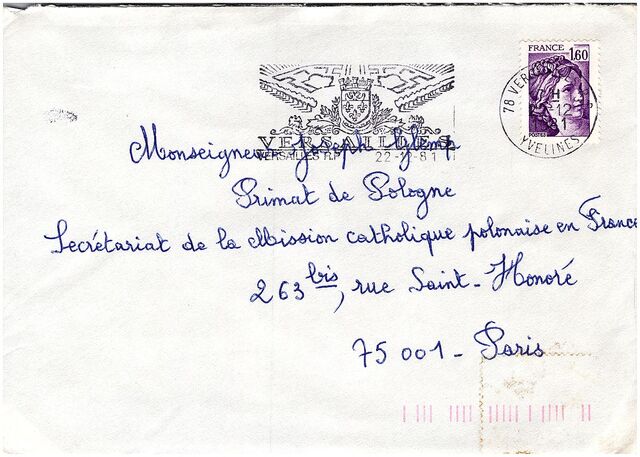 FRANCE
1,60
POSTES
78 VERS
H
-12-
1
YVELINES
VERSAILLES
VERSAILLES R.P. 22-12-81
Monseigneur Joseph Glemp
Primat de Pologne
Secrétariat de la Mission catholique polonaise en France
263 bis, rue Saint-Honoré
75001 - Paris